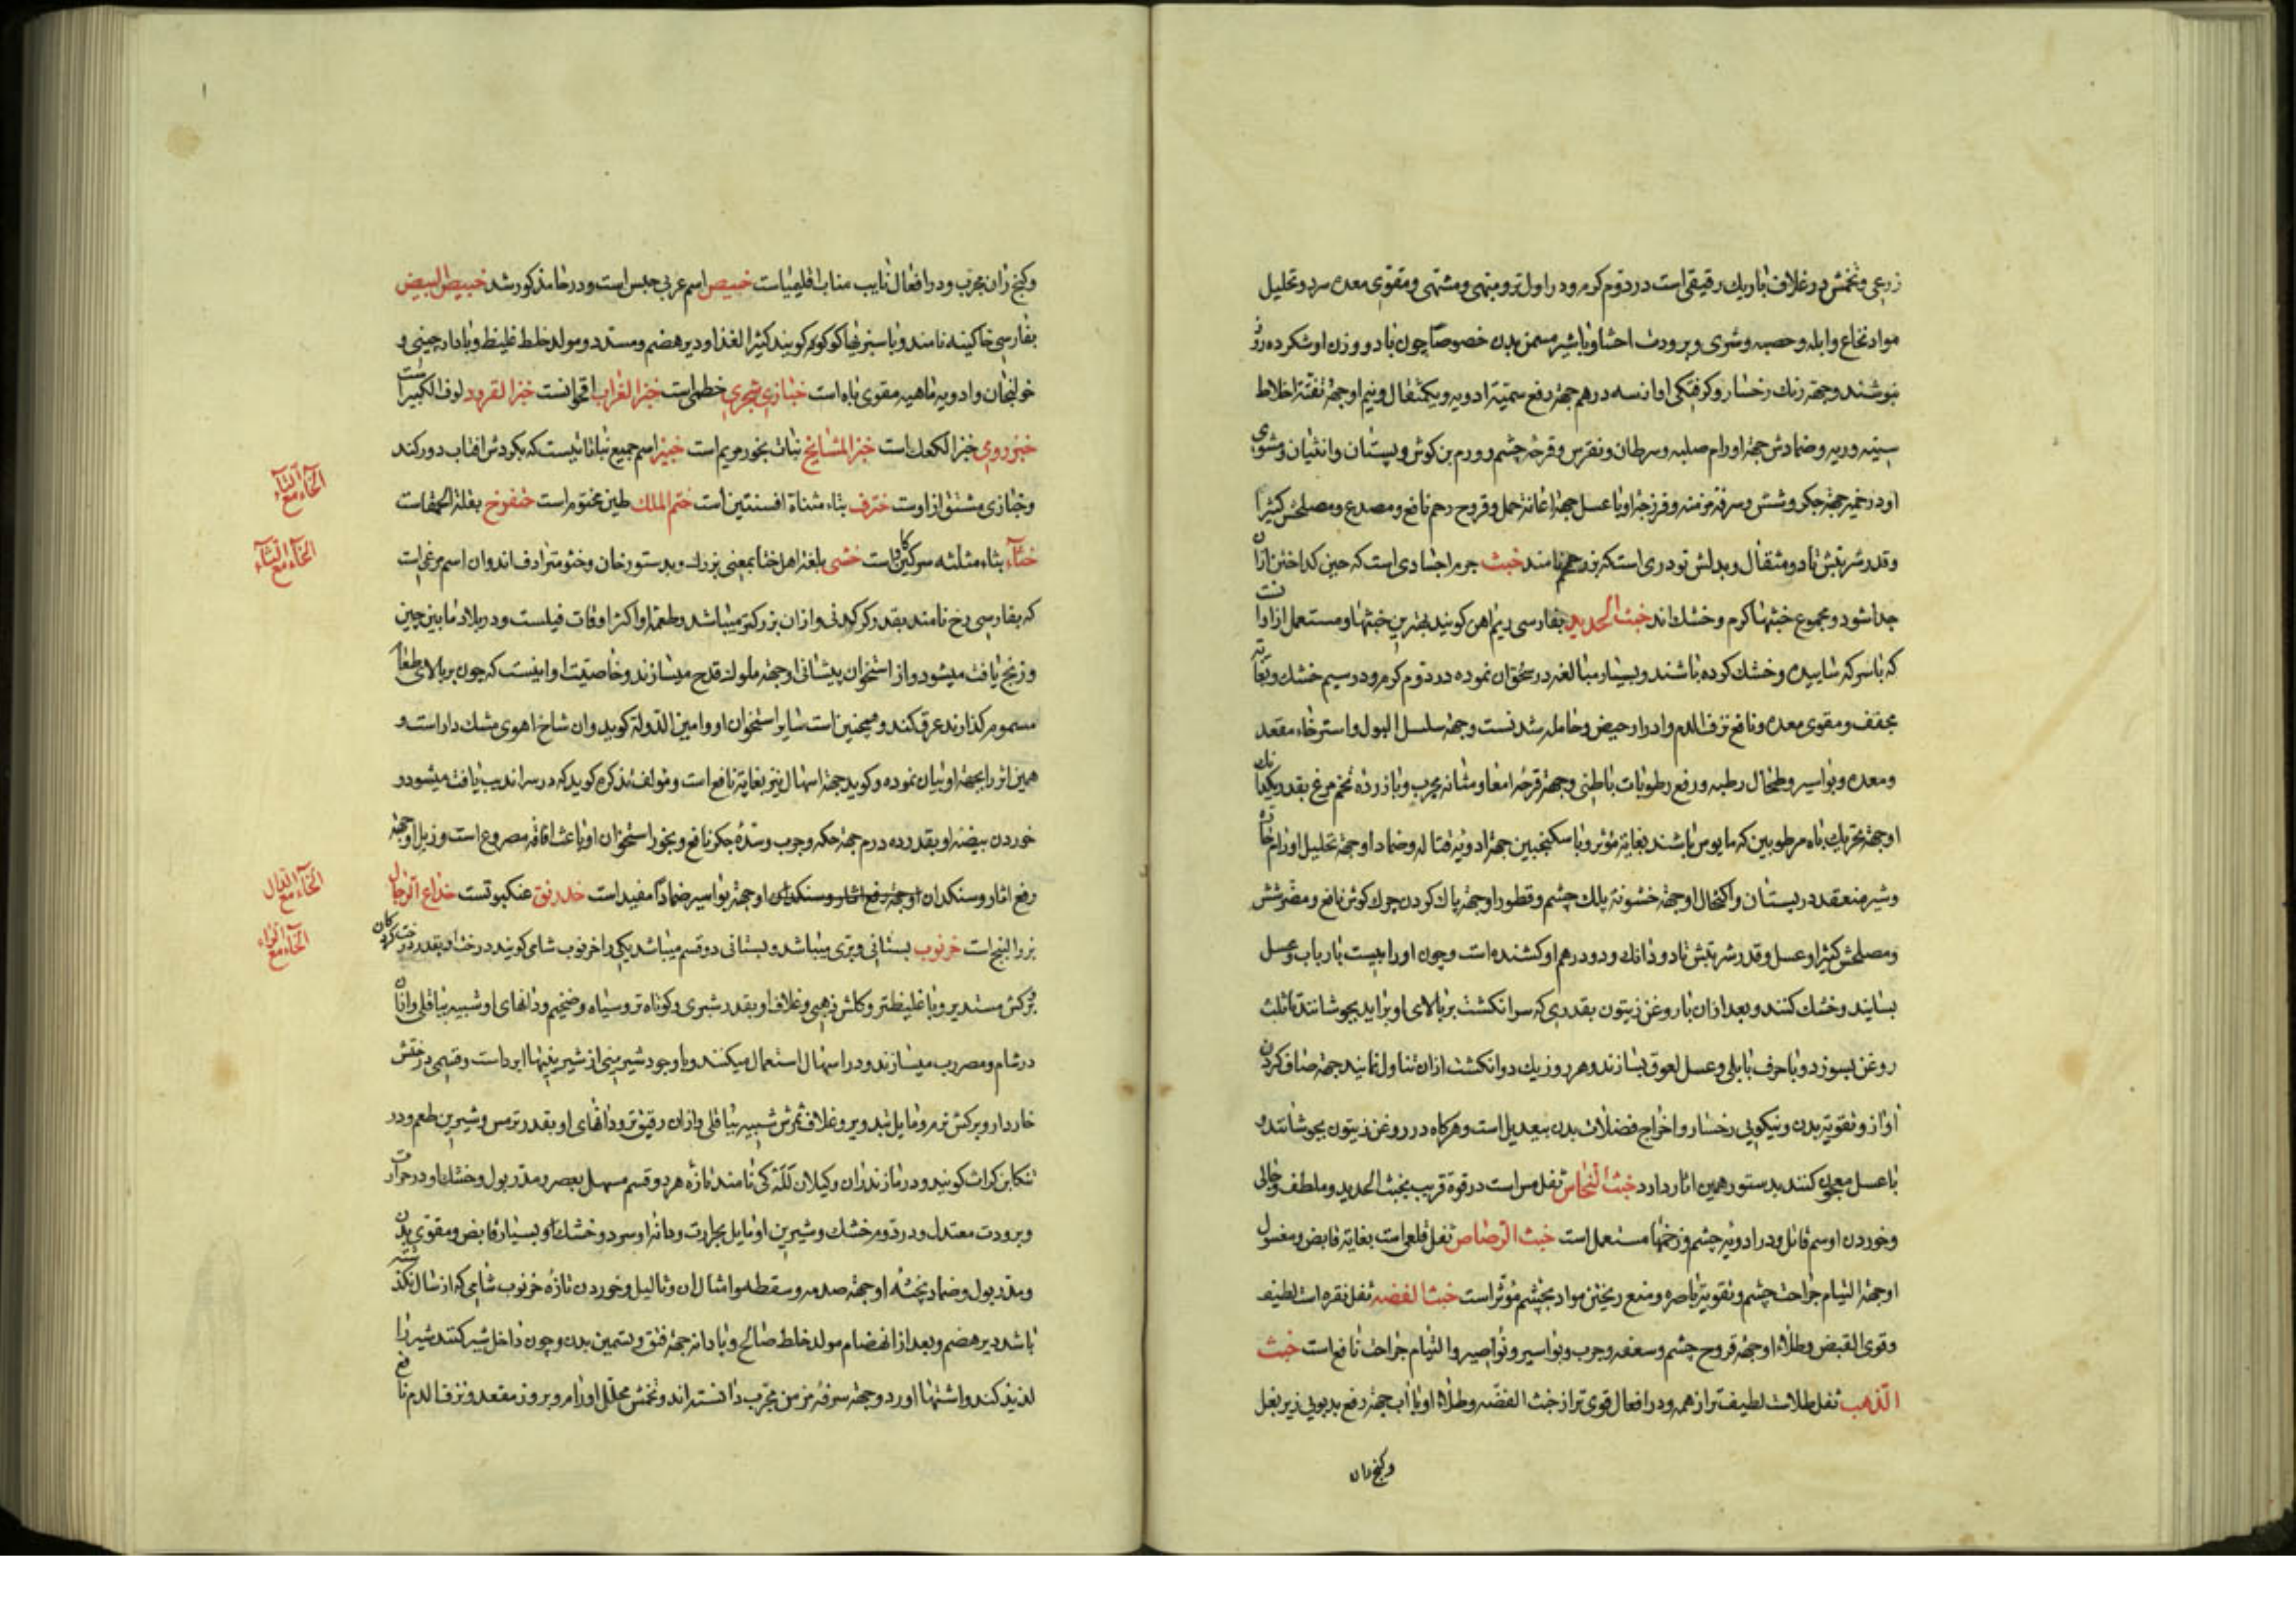 زرعی و تخمش در غلاف باریك رقیقی است در دوم كرم و در اول تر و مبهی و مشهی و مقوی معده سرد و تحلیل
مواد نخاع و ابله و حصبه و شری و برودت احشا و با شیر مسمن بدن خصوصا چون با دو وزن او شكر ده روز
بنوشند و جهة رنك رخسار و كرفتكی اواز سه درهم جهة رفع سمیة ادویه و یكمثقال و نیم او جهة نفثة اخلاط
سینه و ریه و ضمادش جهة اورام صلبه و سرطان و نقرس و قرحه چشم و ورم بن كوش و پستان و انثیان و مشوی
او در خمیر جهة جكر و شش و سرفه مزمنه و فرزجه او با عسل جهة اعانة حمل و قروح رحم نافع و مصدع و مصلحش كثیرا
و قدر شربتش تا دو مثقال و بدلش تودری است خبث جرم اجسادی است كه حین كداختن ازان
جدا شود و مجموع خبثها كرم و خشك اند خبث الحدید بفارسی ریم اهن كویند بهترین خبثها و مستعمل از ادا
كه با سركه سائیده و خشك كرده باشند و بسیار مبالغه در سحق ان نموده در دوم كرم و در سیم خشك و بغایه
مجفف و مقوی معده و نافع نزف الدم و ادرار حیض و حامله شدنست و جهة سلسل البول و استرخاء مقعد
و معده و بواسیر و طحال رطبه و رفع رطوبات باطنی و جهة قرحه امعا و مثانه مجرب و با زرده تخم مرغ بقدر یكدانك
او جهة تحریك باه مرطوبین كه مایوس باشند بغایة مؤثر و با سكنجبین جهة ادویه قتاله و ضماد او جهة تحلیل اورام حاره
و شیر منعقد در پستان و اكتحال او جهة خشونة پلك چشم و قطور او جهة پاك كردن چرك كوش نافع و مضر شش
و مصلحش كثیرا و عسل و قدر شربتش تا دو دانك و دو درهم او كشنده است و چون او را بیست بار باب و عسل
بسایند و خشك كنند و بعد ازان با روغن زیتون بقدری كه سر انكشت بر بالای او براید بجوشانند تا ثلث
روغن بسوزد و با حرف بابلی و عسل لعوق بسازند و هر روز یك دو انكشت ازان تناول نمایند جهة صاف كردن
اواز و تقویة بدن و نیكویی رخسار و اخراج فضلات بدن بیعدیل است و هركاه در روغن زیتون بجوشانند و
با عسل معجون كنند بدستور همین اثار دارد خبث النحاس ثفل مس است در قوة قریب بخبث الحدید و ملطف و جالی
و خوردن او سم قاتل و در ادویه چشم و زخمها مستعمل است خبث الرصاص ثفل قلعی است بغایة قابض و مغسول
او جهة التیام جراحت چشم و تقویة باصره و منع ریختن مواد بچشم مؤثر است خبث الفضه ثفل نقره است لطیف
و قوی القبض و طلاء او جهة قروح چشم و سعفه و جرب و بواسیر و نواصیر و التیام جراحت نافع است خبث
الذهب ثفل طلاست لطیف تر از همه و در افعال قوی تر از خبث الفضه و طلاء او با اب جهة رفع بدبویی زیر بغل
و كنج ران
و كنج ران مجرب و در افعال نایب مناب اقلیمیاست خبیص اسم عربی حیس است و در حا مذكور شد خبیص البیض
بفارسی خاكینه نامند و با سبزیها كوكو كویند كثیر الغذا و دیر هضم و مسدد و مولد خلط غلیظ و با دارچینی و
خولنجان و ادویه ماهیه مقوی باه است خبازی شجری خطمی است خبز الغراب اقحوانست خبز القرود لوف الكبیر است
خبز رومی خبز الكعك است خبز المشایخ نبات بخور مریم است خبیز اسم جمیع نباتاتیست كه بكردش افتاب دور كند
و خبازی مشتق از اوست خترف بتاء مثناة افسنتین است ختم الملك طین مختوم است ختفوخ بقلة الحمقاست
الخاء مع التاء
خثاء بثاء مثلثه سركین كاو است خثی بلغة اهل ختا بمعنی بزرك و بدستور خان و خثو مترادف اند و ان اسم مرغی است
الخاء مع الثاء
كه بفارسی رخ نامند بقدر كركدنی و ازان بزركتر میباشد و طعمه او اكثر اوقات فیلست و در بلاد مابین چین
و زنج یافت میشود و از استخوان پیشانی او جهة ملوك قدح میسازند و خاصیت او اینست كه چون بر بالای طعام
مسموم كذارند عرق كند و همچنین است سایر استخوان او و امین الدوله كوید و ان شاخ اهوی مشك دار است و
همین اثر را بجهة او بیان نموده و كوید جهة اسهال نیز بغایة نافع است و مولف تذكره كوید كه در سراندیب یافت میشود و
خوردن بیضه او بقدر ده درم جهة حكه و جرب و سده جكر نافع و بخور استخوان او باعث افاقه مصروع است و زبل او جهة
رفع اثار و سنكدان او جهة رفع اثار و سنكدان او جهة بواسیر ضمادا مفید است خدرنق عنكبوتست خداع الرجال
الخاء مع الدال
بزر البنج است خرنوب بستانی و بری میباشد و بستانی دو قسم میباشد یكی را خرنوب شامی كویند درخت او بقدر درخت كردكان
الخاء مع الراء
و بركش مستدیر و با غلیظتر و كلش ذهبی و غلاف او بقدر شبری و كوتاه تر و سیاه و ضخیم و دانهای او شبیه بباقلی و ازان
در شام و مصر رب میسازند و در اسهال استعمال میكنند و با وجود شیرینی از شیرینیها ابرد است و قسمی درختش
خاردار و بركش نرم و مایل بتدویر و غلاف ثمرش شبیه بباقلی و ازان رقیق تر و دانهای او بقدر ترمس و شیرین طعم و در
تنكابن كرات كویند و در مازندران و كیلان للكی نامند تازه هر دو قسم مسهل بعصر و مدر بول و خشك او در حرارت
و برودت معتدل و در دوم خشك و شیرین او مایل بحرارت و دانه او سرد و خشك و بسیار قابض و مقوی بدن
و مدر بول و ضماد پخته او جهة صدمه و سقطه و امثال ان و ثالیل و خوردن تازه خرنوب شامی كه از سال نكذشته
باشد دیر هضم و بعد از انهضام مولد خلط صالح و با دانه جهة فتق و تسمین بدن و چون داخل شیر كنند شیر را
لذیذ كند و اشتها اورد و جهة سرفه مزمن مجرب دانسته اند و تخمش محلل اورام و بروز مقعد و نزف الدم نافع